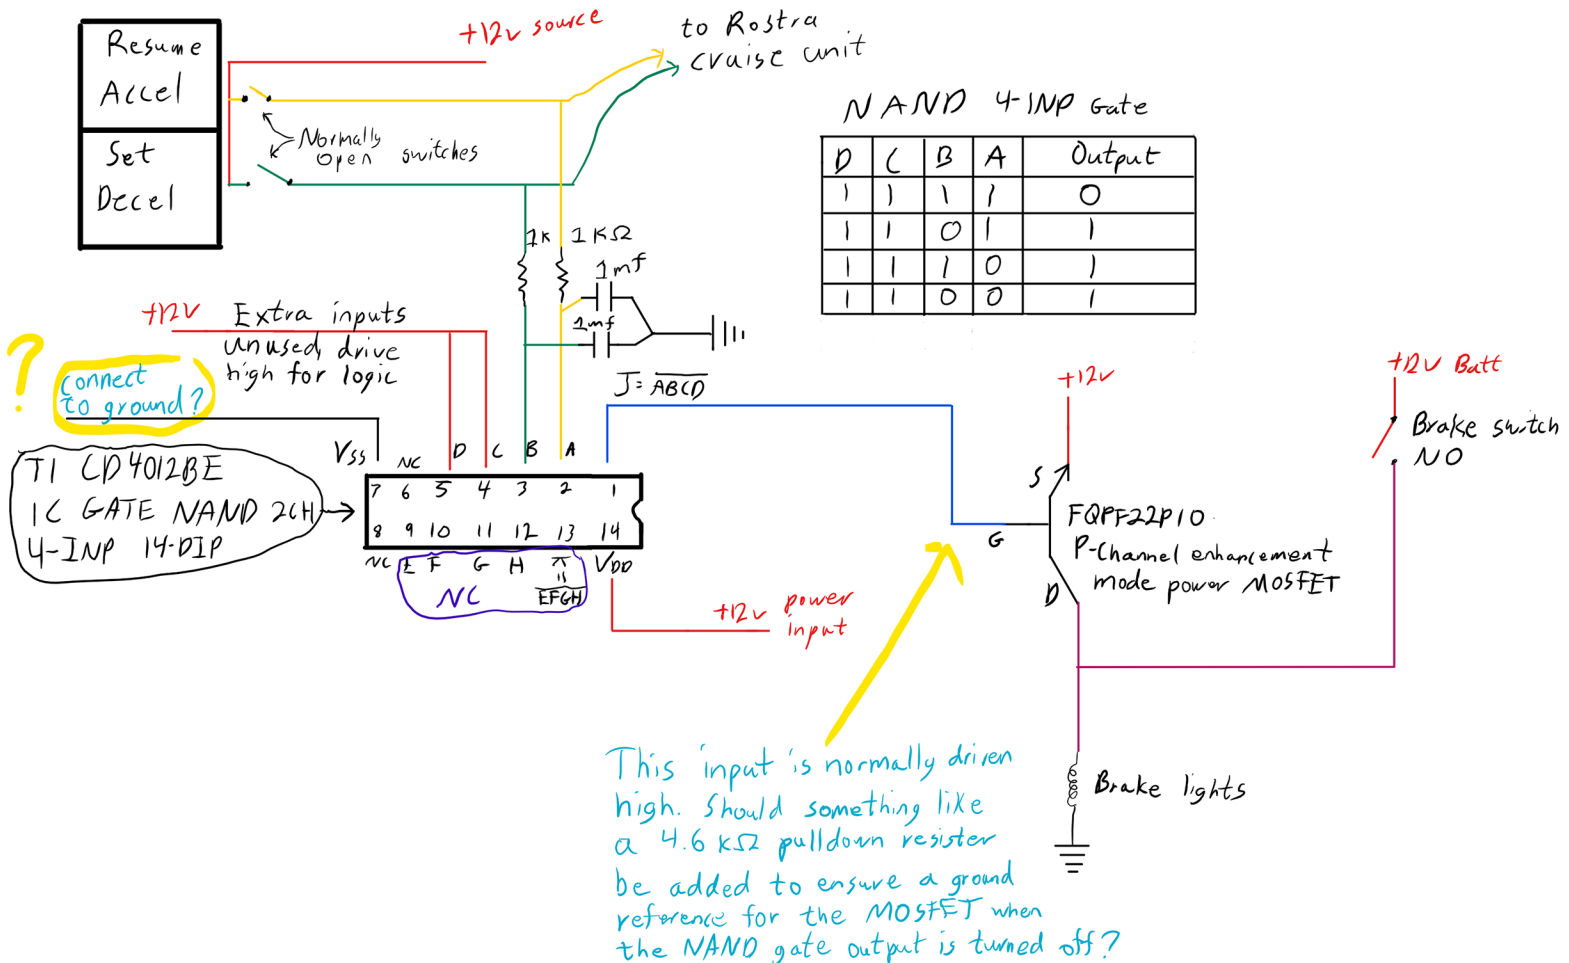 Resume
Accel
Set
Decel
+12v source
to Rostra
cruise unit
Normally
open switches
NAND 4-INP Gate
D C B A Output
1 1 1 1 0
1 1 0 1 1
1 1 1 0 1
1 1 0 0 1
1k 1KΩ
1mf
1mf
+12V Extra inputs
unused, drive
high for logic
?
connect
to ground?
J = ABCD
Vss NC D C B A
7 6 5 4 3 2 1
8 9 10 11 12 13 14
NC E F G H K VDD
=
EFGH
NC
TI CD4012BE
IC GATE NAND 2CH
4-INP 14-DIP
+12v power
input
+12v
S
G
D
FQPF22P10
P-Channel enhancement
mode power MOSFET
+12v Batt
Brake switch
NO
Brake lights
This input is normally driven
high. Should something like
a 4.6 KΩ pulldown resister
be added to ensure a ground
reference for the MOSFET when
the NAND gate output is turned off?